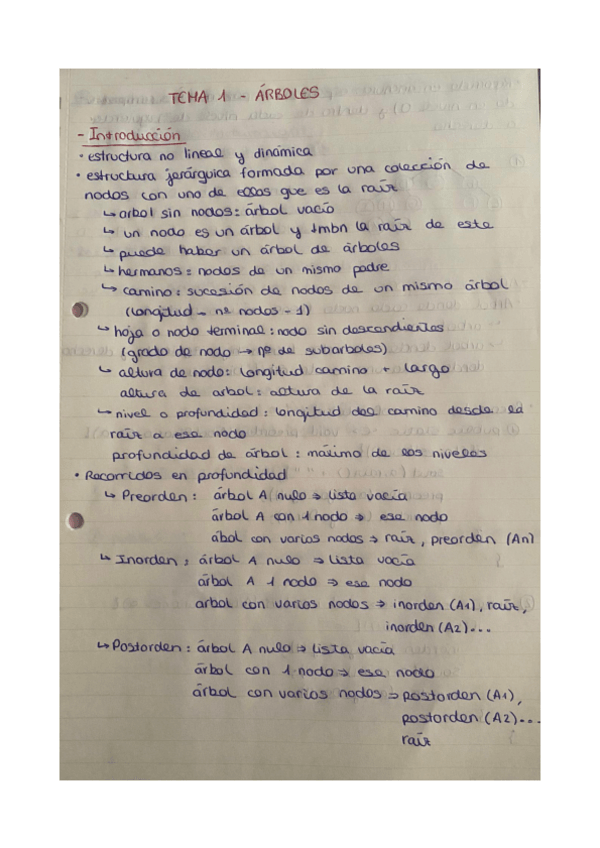 TEMA 1 - ÁRBOLES
- Introducción
• estructura no lineal y dinámica
• estructura jerárquica formada por una colección de
nodos con uno de ellos que es la raíz
↳ arbol sin nodos: árbol vacío
↳ un nodo es un árbol y tmbn la raíz de este
↳ puede haber un árbol de árboles
↳ hermanos = nodos de un mismo padre
↳ camino: sucesión de nodos de un mismo árbol
(longitud → nº nodos - 1)
↳ hoja o nodo terminal: nodo sin descendientes
(grado de nodo → nº de subarboles)
↳ altura de nodo: longitud camino + largo
altura de arbol: altura de la raíz
↳ nivel o profundidad: longitud del camino desde la
raíz a ese nodo
profundidad de árbol: máximo de los niveles
• Recorridos en profundidad
↳ Preorden: árbol A nulo ⇒ lista vacía
árbol A con 1 nodo ⇒ ese nodo
ábol con varios nodos ⇒ raíz, preorden (An)
↳ Inorden: árbol A nulo ⇒ lista vacía
árbol A 1 nodo ⇒ ese nodo
arbol con varios nodos ⇒ inorden (A1), raíz,
inorden (A2)...
↳ Postorden: árbol A nulo ⇒ lista vacía
árbol con 1 nodo ⇒ ese nodo
árbol con varios nodos ⇒ postorden (A1),
postorden (A2)...
raíz